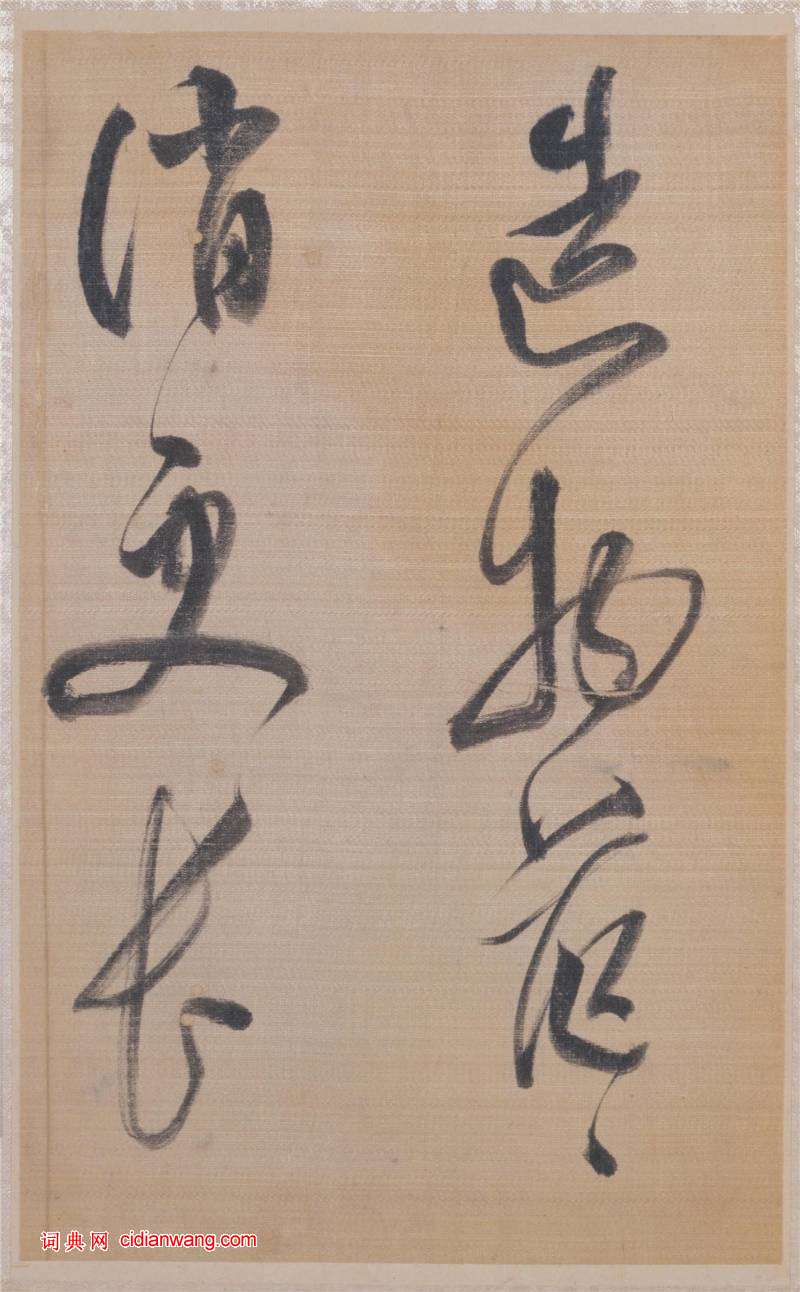 造物
消更長
词典网 cidianwang.com